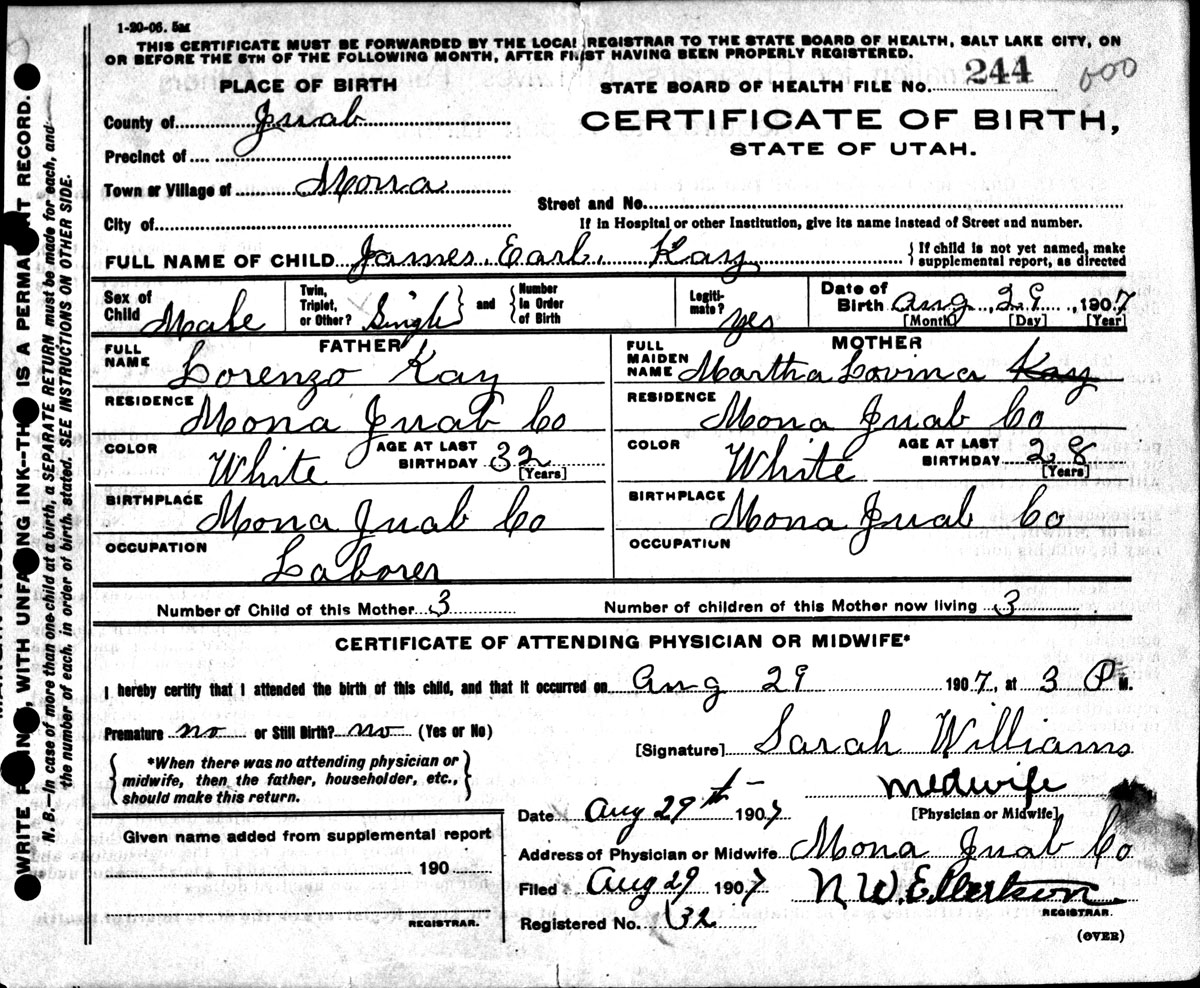 1-20-06. 5M
THIS CERTIFICATE MUST BE FORWARDED BY THE LOCAL REGISTRAR TO THE STATE BOARD OF HEALTH, SALT LAKE CITY, ON
OR BEFORE THE 5TH OF THE FOLLOWING MONTH, AFTER FIRST HAVING BEEN PROPERLY REGISTERED.
PLACE OF BIRTH
STATE BOARD OF HEALTH FILE NO. 244 600
County of Juab
CERTIFICATE OF BIRTH,
Precinct of
STATE OF UTAH.
Town or Village of Mona
Street and No.
City of
If in Hospital or other Institution, give its name instead of Street and number.
FULL NAME OF CHILD James Earl Kay {If child is not yet named, make supplemental report, as directed
Sex of Child Male Twin, Triplet, or Other? Single } and { Number In Order of Birth Legitimate? yes Date of Birth Aug 29, 1907
[Month] [Day] [Year]
FATHER MOTHER
FULL NAME Lorenzo Kay FULL MAIDEN NAME Martha Lovina Kay
RESIDENCE Mona Juab Co RESIDENCE Mona Juab Co
COLOR White AGE AT LAST BIRTHDAY 32 [Years] COLOR White AGE AT LAST BIRTHDAY 28 [Years]
BIRTHPLACE Mona Juab Co BIRTHPLACE Mona Juab Co
OCCUPATION Laborer OCCUPATION
Number of Child of this Mother 3 Number of children of this Mother now living 3
CERTIFICATE OF ATTENDING PHYSICIAN OR MIDWIFE*
I hereby certify that I attended the birth of this child, and that it occurred on Aug 29 1907, at 3 P M.
Premature no or Still Birth? no (Yes or No)
[Signature] Sarah Williams
*When there was no attending physician or
midwife, then the father, householder, etc.,
should make this return.
medwife
Date Aug 29th 1907 [Physician or Midwife]
Given name added from supplemental report
190
REGISTRAR.
Address of Physician or Midwife Mona Juab Co
Filed Aug 29 1907 N W Ellertson
REGISTRAR.
Registered No. 32
(OVER)
WRITE PLAINLY, WITH UNFADING INK--THIS IS A PERMANENT RECORD.
N. B.—In case of more than one child at a birth, a SEPARATE RETURN must be made for each, and
the number of each, in order of birth, stated. SEE INSTRUCTIONS ON OTHER SIDE.